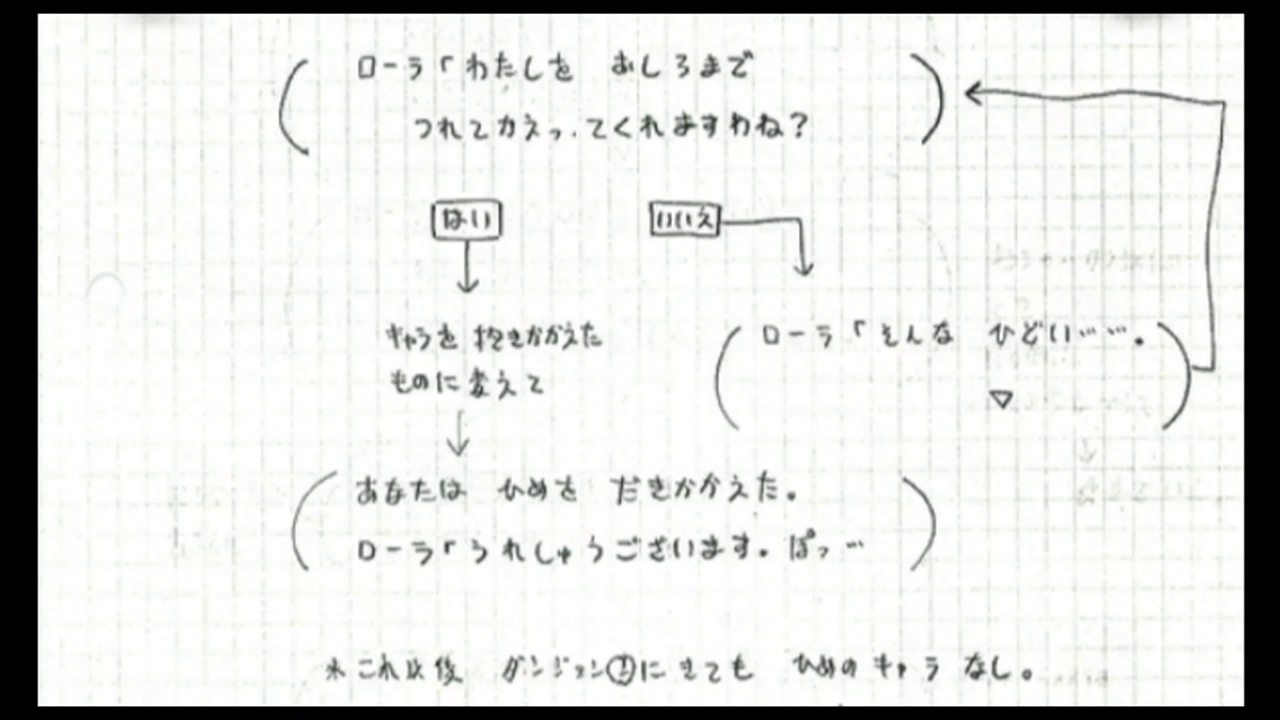 ローラ「わたしを おしろまで
つれてかえっ.てくれますわね?
はい
いいえ
キャラを抱きかかえた
ものに変えて
ローラ「そんな ひどい……。
▽
あなたは ひめを だきかかえた。
ローラ「うれしゅうございます。ぽっ…
*これ以後 ダンジョン にきても ひめのキャラ なし。